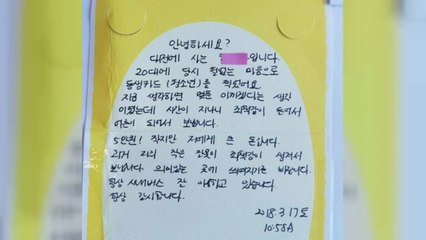 안녕하세요?
대전에 사는 입니다.
20대에 당시 철없는 마음으로
동생카드 (청소년)을 찍었어요.
지금 생각하면 얼른 아끼겠다는 생각
이었는데 시간이 지나니 죄책감이 들어서
어른이 되어서 보냅니다.
5만원! 작지만 저에게 큰 돈입니다.
과거 저의 작은 잘못이 죄책감이 생겨서
보냅니다. 의미있는 곳에 쓰여지기를 바랍니다.
항상 서비스 잘 이용하고 있습니다.
항상 감사합니다.
2018.3.17토
10:58A